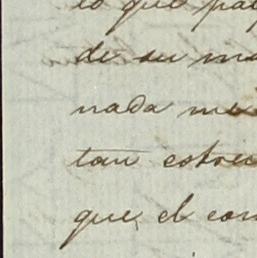 lo que pa
de su ma
nada me
tan estre
que el con